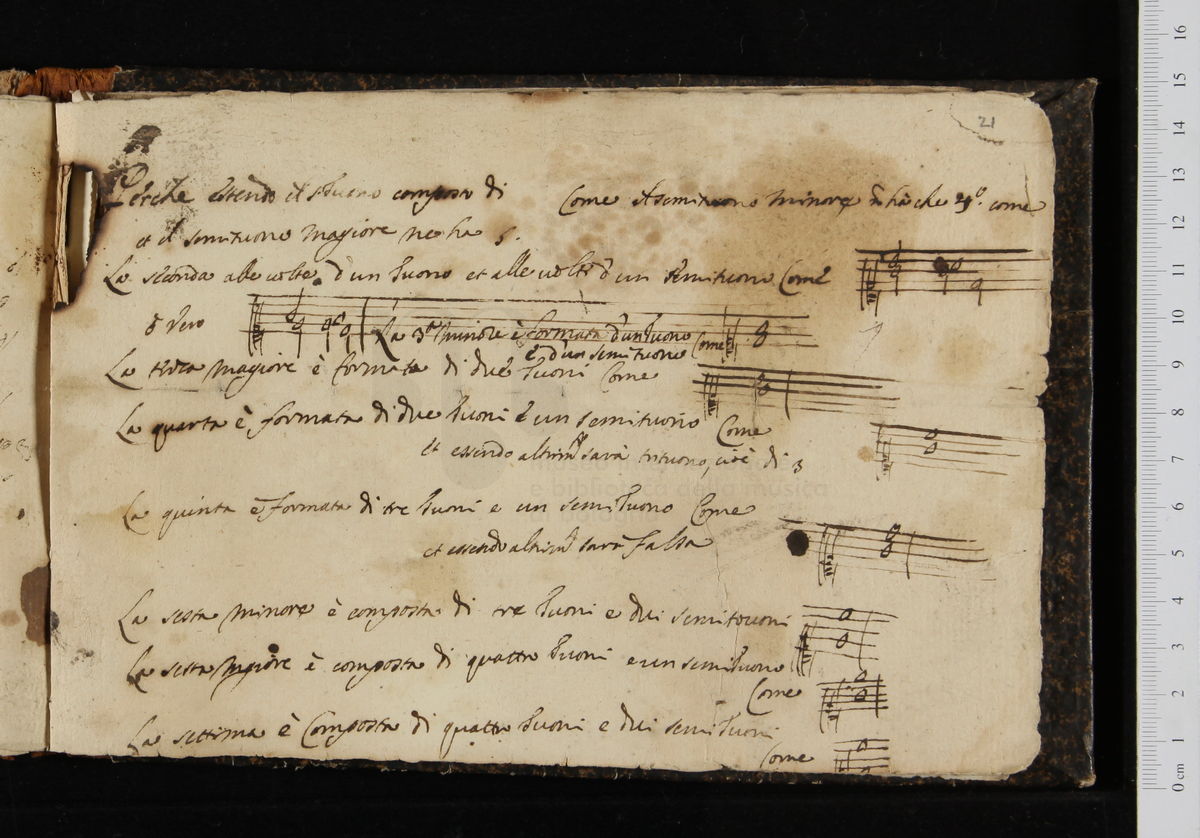 21
Perche essendo il Tuono composto di Come il semituono minore ha che come
et il semituono Magiore ne ha 5.
La seconda alle uolte d'un Tuono et alle uolte d'un semituono Come
ò vero
La 3a Minore è formata d'un Tuono Come
e d'un semituono
La terza Magiore è formata di due Tuoni Come
La quarta è formata di due Tuoni e un semituono Come
et essendo altrim.ti sarà trituono, cioè di 3
e biblioteca della musica
La quinta è formata di tre Tuoni e un semiTuono Come
et essendo altrim.ti sarà falsa
La sesta Minore è composta di tre Tuoni e dui semitouoni
La sesta Mgiore è composta di quattro Tuoni e un semiTuono
Come
La settima è Composta di quattro Tuoni e dui semiTuoni
Come